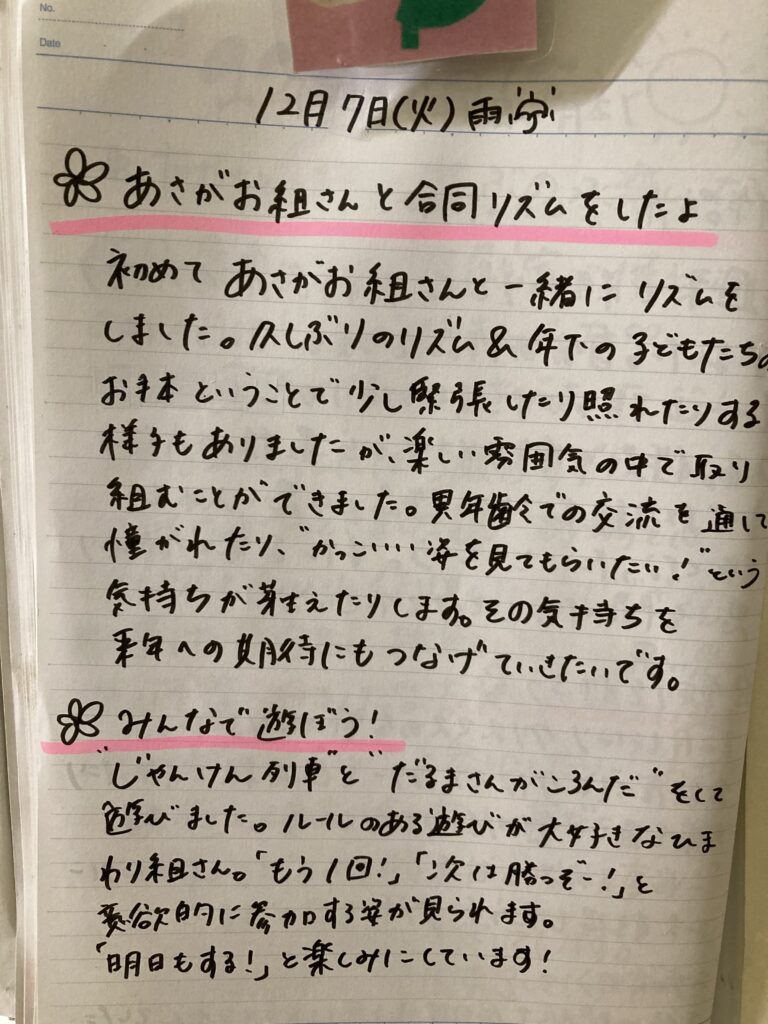 No.
Date
12月7日(火)雨
あさがお組さんと合同リズムをしたよ
初めて あさがお組さんと一緒に リズムを
しました。久しぶりのリズム& 年下の子どもたちの
お手本 ということで 少し緊張したり照れたりする
様子もありましたが、楽しい雰囲気の中で取り
組むことができました。異年齢での交流を通して
憧がれたり、"かっこいいい姿を見てもらいたい!"という
気持ちが芽生えたりします。その気持ちを
来年への期待にもつなげていきたいです。
みんなで遊ぼう!
"じゃんけん列車"と"だるまさんがころんだ"をして
遊びました。ルールのある遊びが大好きなひま
わり組さん。「もう1回!」「次は勝つぞー!」と
意欲的に参加する姿が見られます。
「明日もする!」と楽しみにしています!